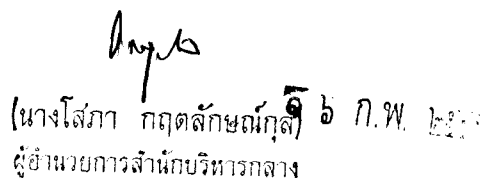 (นางโสภา กฤตลักษณ์กุล) ๑๖ ก.พ.
ผู้อำนวยการสำนักบริหารกลาง